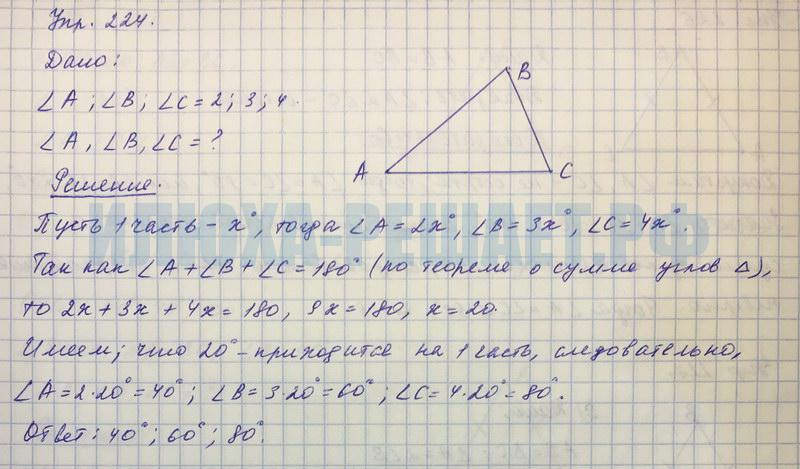 Упр. 224.
Дано:
∠A ; ∠B ; ∠C = 2 ; 3 ; 4.
∠A , ∠B, ∠C = ?
B
A
C
Решение.
Пусть 1 часть – x°, тогда ∠A = 2x°, ∠B = 3x°, ∠C = 4x°.
ИЛЮХА-РЕШАЕТ.РФ
Так как ∠A + ∠B + ∠C = 180° (по теореме о сумме углов △),
то 2x + 3x + 4x = 180, 9x = 180, x = 20.
Имеем; что 20° – приходится на 1 часть, следовательно,
∠A = 2·20° = 40° ; ∠B = 3·20° = 60° ; ∠C = 4·20° = 80°.
Ответ: 40° ; 60° ; 80°.